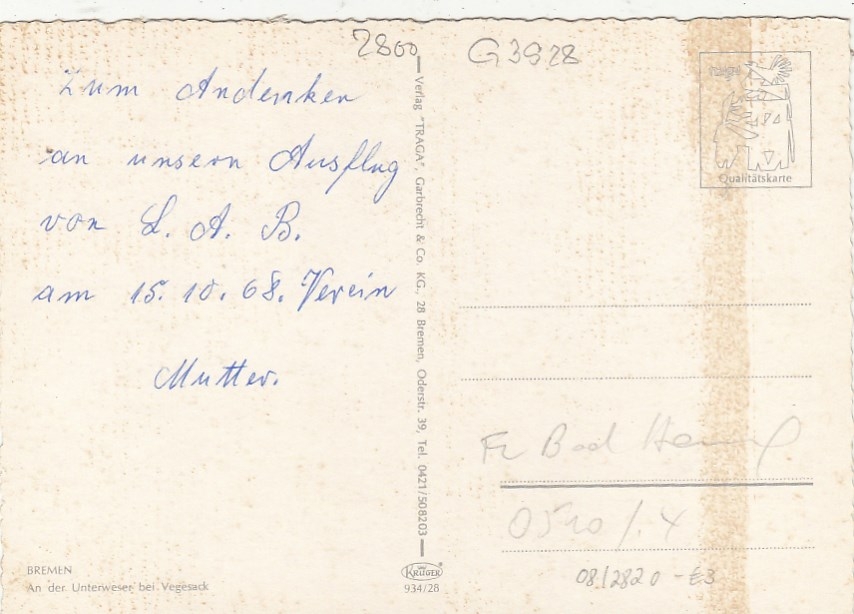 2800
G3928
Zum Andenken
an unsern Ausflug
von L. A. B.
am 15.10.68. Verein
Mutter.
Verlag "TRAGA", Garbrecht & Co. KG., 28 Bremen, Oderstr. 39, Tel. 0421/508203
Qualitätskarte
Bad
08/2820 - £3
BREMEN
An der Unterweser bei Vegesack
KRÜGER
934/28